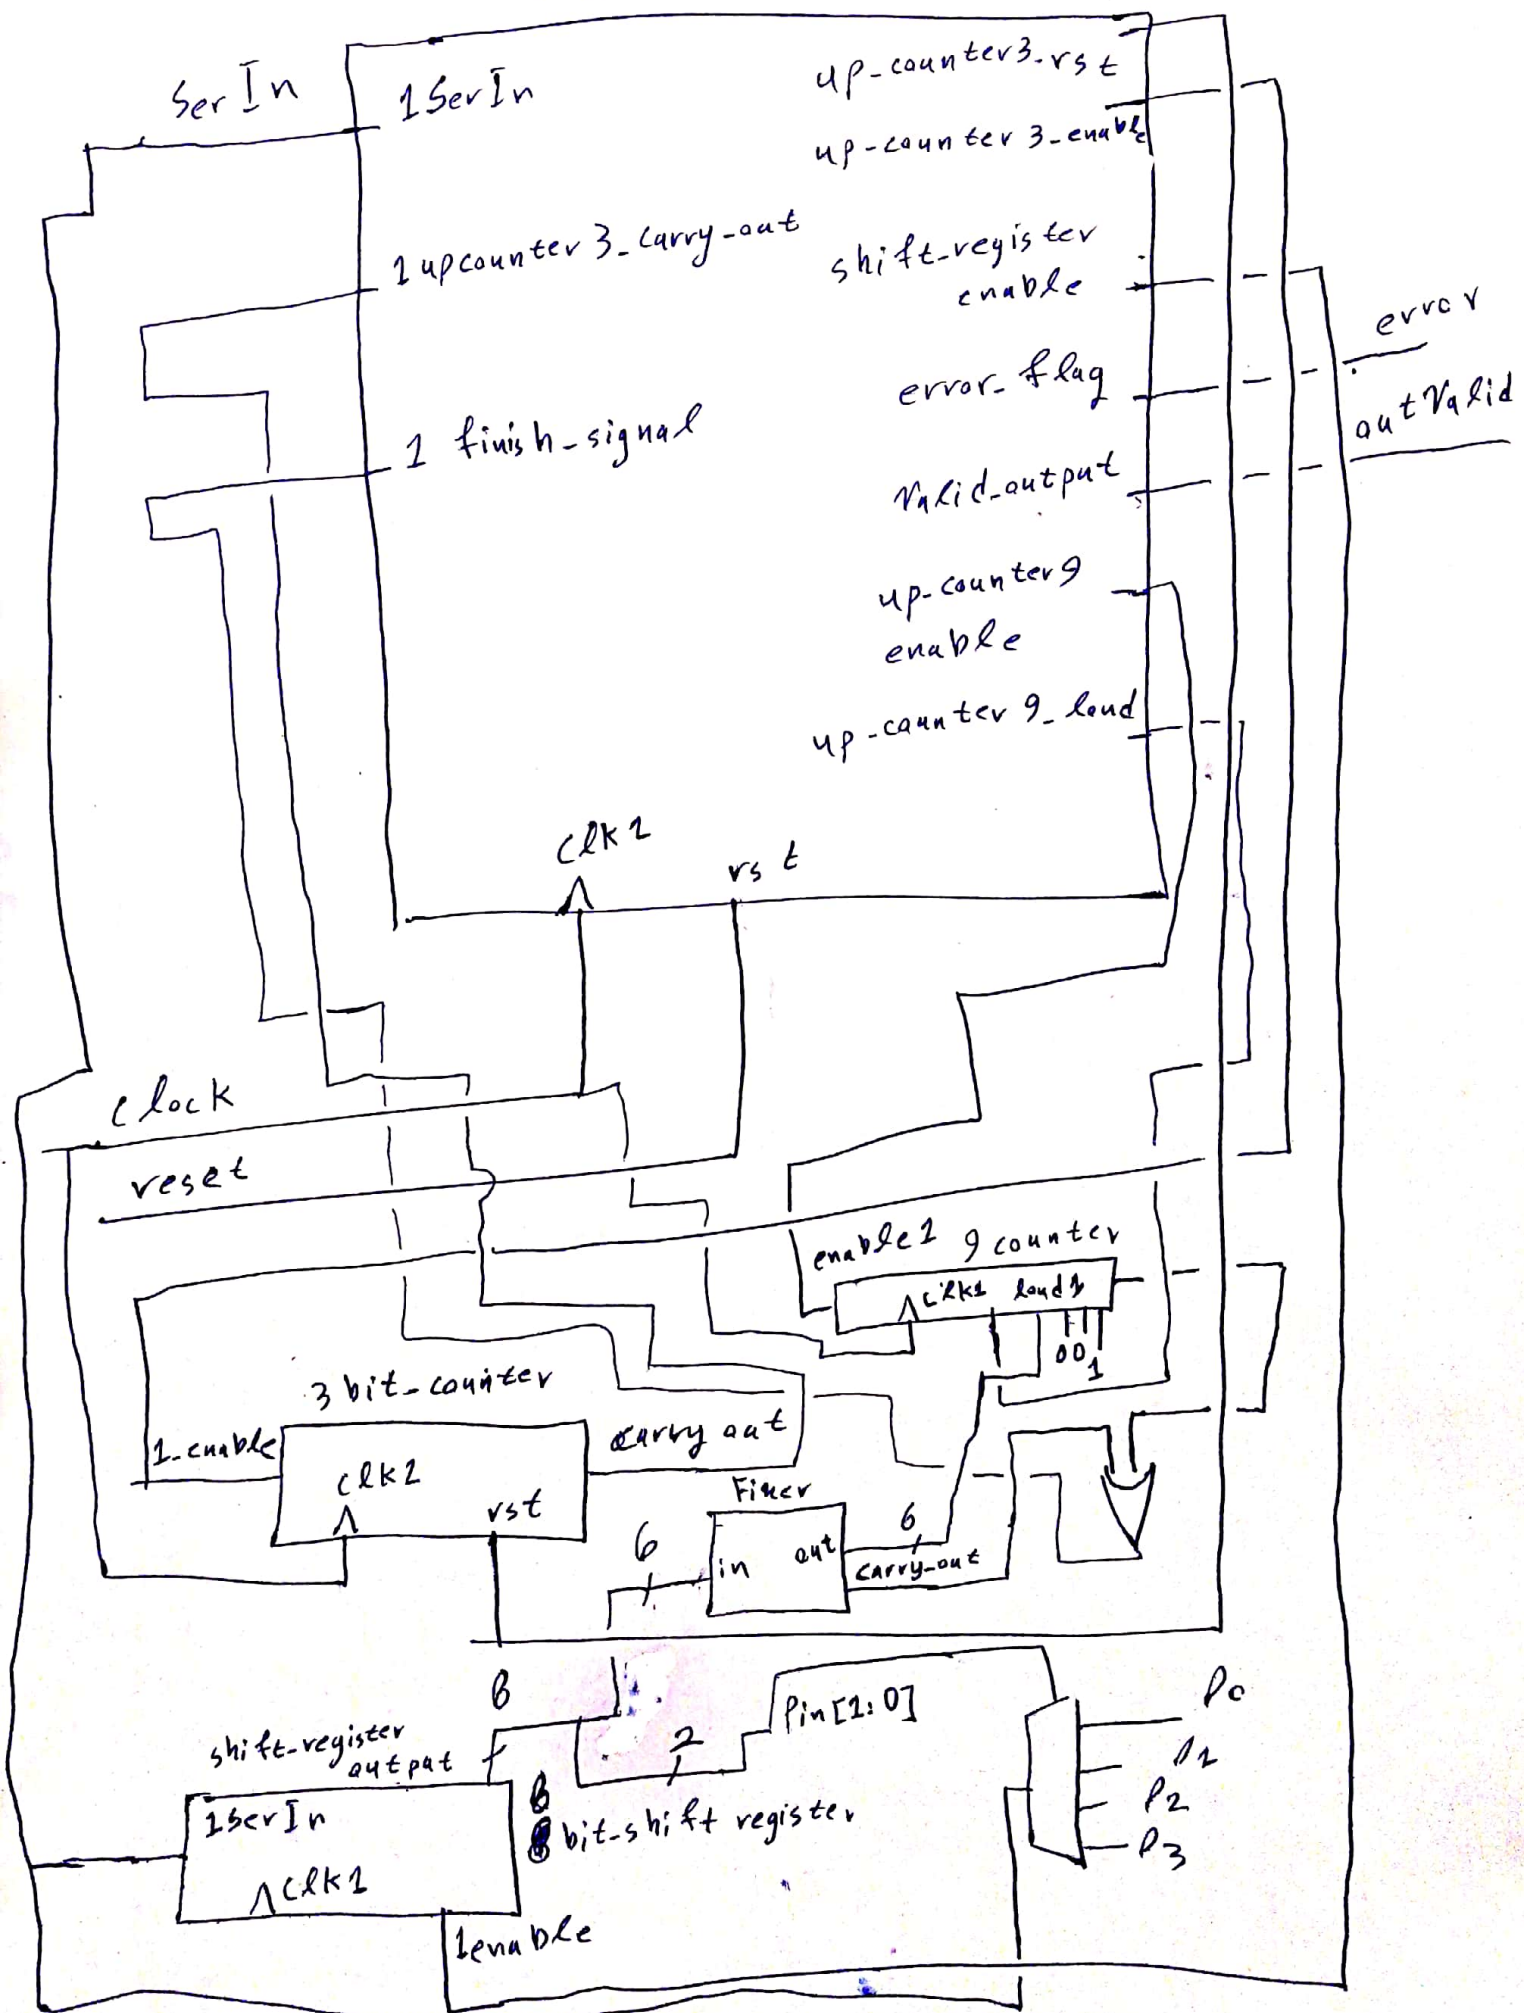 SerIn
1 SerIn
up-counter3-rst
up-counter 3-enable
1 upcounter 3-carry-out
shift-register
enable
error
error-flag
outValid
1 finish-signal
Valid-output
up-counter9
enable
up-counter 9-load
clk1
rst
clock
reset
enable1
9 counter
clk1
load1
0 0 1
3 bit-counter
1-enable
carry out
clk1
rst
Fixer
6
in
out
6
carry-out
8
Pin[1:0]
P0
shift-register
output
2
P1
P2
P3
1SerIn
8
bit-shift register
clk1
1enable